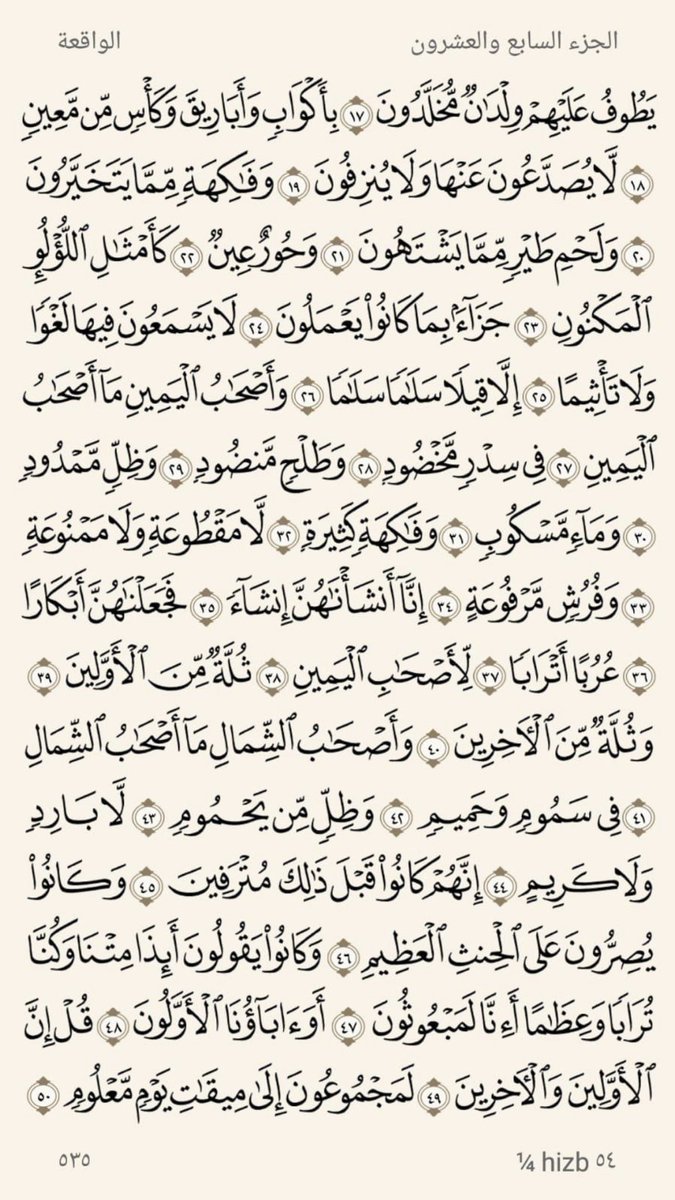 الجزء السابع والعشرون الواقعة
يَطُوفُ عَلَيْهِمْ وِلْدَٰنٌ مُّخَلَّدُونَ ١٧ بِأَكْوَابٍ وَأَبَارِيقَ وَكَأْسٍ مِّن مَّعِينٍ
١٨ لَّا يُصَدَّعُونَ عَنْهَا وَلَا يُنزِفُونَ ١٩ وَفَٰكِهَةٍ مِّمَّا يَتَخَيَّرُونَ
٢٠ وَلَحْمِ طَيْرٍ مِّمَّا يَشْتَهُونَ ٢١ وَحُورٌ عِينٌ ٢٢ كَأَمْثَٰلِ ٱللُّؤْلُؤِ
ٱلْمَكْنُونِ ٢٣ جَزَآءًۢ بِمَا كَانُوا۟ يَعْمَلُونَ ٢٤ لَا يَسْمَعُونَ فِيهَا لَغْوًا
وَلَا تَأْثِيمًا ٢٥ إِلَّا قِيلًا سَلَٰمًا سَلَٰمًا ٢٦ وَأَصْحَٰبُ ٱلْيَمِينِ مَآ أَصْحَٰبُ
ٱلْيَمِينِ ٢٧ فِى سِدْرٍ مَّخْضُودٍ ٢٨ وَطَلْحٍ مَّنضُودٍ ٢٩ وَظِلٍّ مَّمْدُودٍ
٣٠ وَمَآءٍ مَّسْكُوبٍ ٣١ وَفَٰكِهَةٍ كَثِيرَةٍ ٣٢ لَّا مَقْطُوعَةٍ وَلَا مَمْنُوعَةٍ
٣٣ وَفُرُشٍ مَّرْفُوعَةٍ ٣٤ إِنَّآ أَنشَأْنَٰهُنَّ إِنشَآءً ٣٥ فَجَعَلْنَٰهُنَّ أَبْكَارًا
٣٦ عُرُبًا أَتْرَابًا ٣٧ لِّأَصْحَٰبِ ٱلْيَمِينِ ٣٨ ثُلَّةٌ مِّنَ ٱلْأَوَّلِينَ ٣٩
وَثُلَّةٌ مِّنَ ٱلْءَاخِرِينَ ٤٠ وَأَصْحَٰبُ ٱلشِّمَالِ مَآ أَصْحَٰبُ ٱلشِّمَالِ
٤١ فِى سَمُومٍ وَحَمِيمٍ ٤٢ وَظِلٍّ مِّن يَحْمُومٍ ٤٣ لَّا بَارِدٍ
وَلَا كَرِيمٍ ٤٤ إِنَّهُمْ كَانُوا۟ قَبْلَ ذَٰلِكَ مُتْرَفِينَ ٤٥ وَكَانُوا۟
يُصِرُّونَ عَلَى ٱلْحِنثِ ٱلْعَظِيمِ ٤٦ وَكَانُوا۟ يَقُولُونَ أَئِذَا مِتْنَا وَكُنَّا
تُرَابًا وَعِظَٰمًا أَءِنَّا لَمَبْعُوثُونَ ٤٧ أَوَءَابَآؤُنَا ٱلْأَوَّلُونَ ٤٨ قُلْ إِنَّ
ٱلْأَوَّلِينَ وَٱلْءَاخِرِينَ ٤٩ لَمَجْمُوعُونَ إِلَىٰ مِيقَٰتِ يَوْمٍ مَّعْلُومٍ ٥٠
¼ hizb ٥٤ ٥٣٥